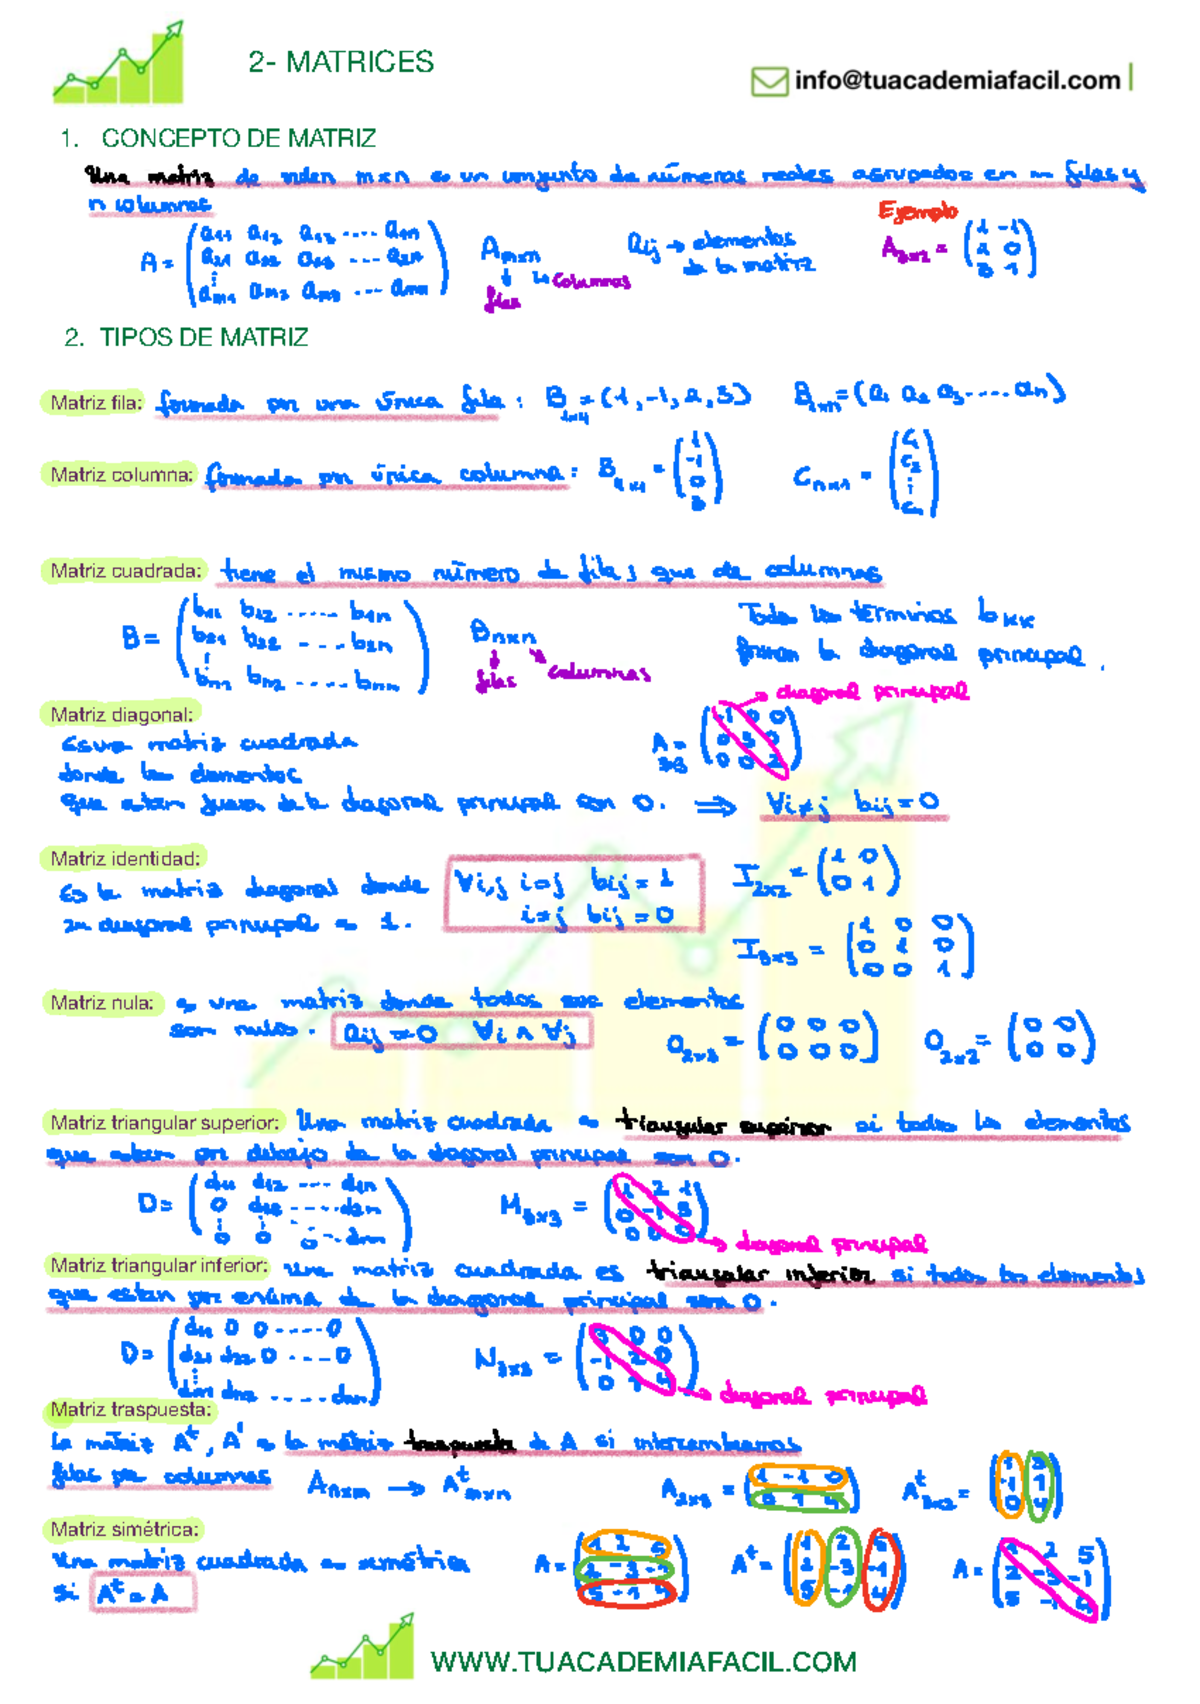 2- MATRICES
info@tuacademiafacil.com
1. CONCEPTO DE MATRIZ
Una matriz de orden m×n es un conjunto de números reales agrupados en m filas y
n columnas
Ejemplo
A = ( a11 a12 a13 .... a1n
a21 a22 a23 ... a2n
⋮
am1 am2 am3 ... amn )
Am×n
filas
columnas
aij → elementos
de la matriz
A3×2 = ( 1 -1
2 0
3 1 )
2. TIPOS DE MATRIZ
Matriz fila: formada por una única fila : B1×4 = (1, -1, 2, 3) B1×n = (a1 a2 a3 ..... an)
Matriz columna: formada por única columna : B4×1 = ( 1
-1
0
3 )
Cn×1 = ( c1
c2
⋮
cn )
Matriz cuadrada: tiene el mismo número de filas que de columnas
B = ( b11 b12 ..... b1n
b21 b22 ... b2n
⋮
bn1 bn2 ..... bnn )
Bn×n
filas
columnas
Todos los términos bKK
forman la diagonal principal.
Matriz diagonal:
diagonal principal
Es una matriz cuadrada
donde los elementos
que están fuera de la diagonal principal son 0. ⇒ ∀i≠j bij = 0
A3×3 = ( -1 0 0
0 3 0
0 0 2 )
Matriz identidad:
Es la matriz diagonal donde
su diagonal principal es 1.
∀i,j i=j bij = 1
i≠j bij = 0
I2×2 = ( 1 0
0 1 )
I3×3 = ( 1 0 0
0 1 0
0 0 1 )
Matriz nula: es una matriz donde todos sus elementos
son nulos. aij = 0 ∀i ∧ ∀j
O2×3 = ( 0 0 0
0 0 0 )
O2×2 = ( 0 0
0 0 )
Matriz triangular superior: Una matriz cuadrada es triangular superior si todos los elementos
que estan por debajo de la diagonal principal son 0.
D = ( d11 d12 ... d1n
0 d22 ....d2n
⋮
0 0 0 ..dnn )
M3×3 = ( 1 2 1
0 -1 3
0 0 )
diagonal principal
Matriz triangular inferior: una matriz cuadrada es triangular inferior si todos los elementos
que estan por encima de la diagonal principal son 0.
D = ( d11 0 0 .....0
d21 d22 0 ....0
⋮
dn1 dn2 ..... dnn )
N3×3 = ( 3 0 0
-1 2 0
0 )
diagonal principal
Matriz traspuesta:
La matriz At, A' es la matriz traspuesta de A si intercambiamos
filas por columnas An×m → Atm×n
A2×3 = ( 1 -1 0
3 1 4 )
At3×2 = ( 1 3
-1 1
0 4 )
Matriz simétrica:
Una matriz cuadrada es simétrica
si At = A
A = ( 1 2 5
2 -3 -1
5 -1 4 )
At = ( 1 2 5
2 -3 -1
5 -1 4 )
A = ( 1 2 5
2 -3 -1
5 -1 4 )
WWW.TUACADEMIAFACIL.COM